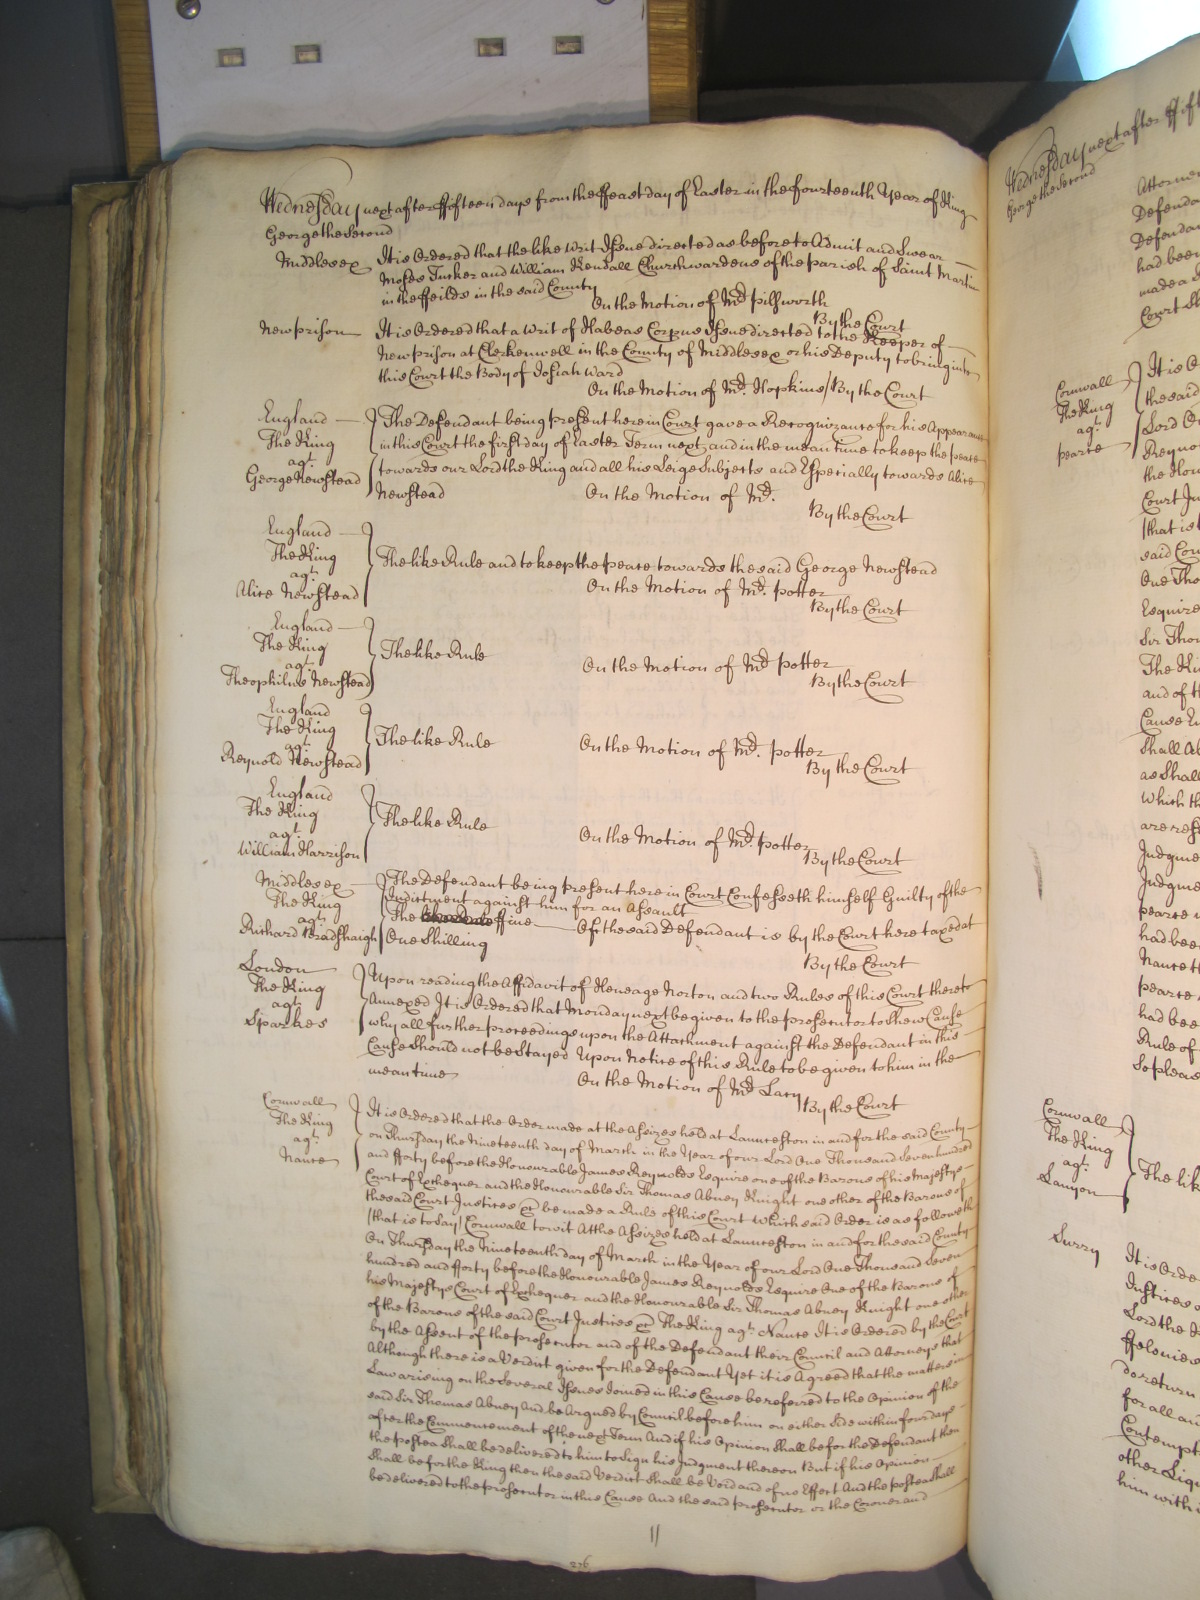 Wednesday next after ffifteen days from the ffeast day of Easter in the fourteenth Year of King
George the Second
Middlesex It is Ordered that the like Writ Issue directed as before to Admit and Swear
Moses Tucker and William Kendall Churchwardens of the parish of Saint Martin
in the ffeilds in the said County
On the Motion of Mr. Pilsworth
By the Court
New prison It is Ordered that a Writ of Habeas Corpus Issue directed to the Keeper of
New prison at Clerkenwell in the County of Middlesex or his Deputy to bring into
this Court the Body of Josiah Ward
On the Motion of Mr. Hopkins / By the Court
England
The King
agt.
George Newstead
The Defendant being present here in Court gave a Recognizance for his Appearance
in this Court the first day of Easter Term next and in the mean time to keep the peace
towards our Lord the King and all his Leige Subjects and Especially towards Alice
Newstead On the Motion of Mr.
By the Court
England
The King
agt.
Alice Newstead
The like Rule and to keep the peace towards the said George Newstead
On the Motion of Mr. Potter
By the Court
England
The King
agt.
Theophilus Newstead
The like Rule
On the Motion of Mr. Potter
By the Court
England
The King
agt.
Reynold Newstead
The like Rule
On the Motion of Mr. Potter
By the Court
England
The King
agt.
William Harrison
The like Rule
On the Motion of Mr. Potter
By the Court
Middlesex
The King
agt.
Richard Bradshaigh
The Defendant being present here in Court Confesseth himself Guilty of the
Indictment against him for an Assault
The ffine Of the said Defendant is by the Court here taxed at
One Shilling
By the Court
London
The King
agt.
Sparkes
Upon reading the Affidavit of Heneage Norton and two Rules of this Court thereto
Annexed It is Ordered that Monday next be given to the prosecutor to Shew Cause
why all further proceedings upon the Attachment against the Defendant in this
Cause Should not be Stayed Upon Notice of this Rule to be given to him in the
mean time
On the Motion of Mr. Lacy
By the Court
Cornwall
The King
agt.
Nance
It is Ordered that the Order made at the Assizes held at Launceston in and for the said County
on Thursday the Nineteenth day of March in the Year of our Lord One Thousand Seven hundred
and fforty before the Honourable James Reynolds Esquire one of the Barons of his Majestys
Court of Exchequer and the Honourable Sir Thomas Abney Knight one other of the Barons of
the said Court Justices &c be made a Rule of this Court Which said Order is as followeth
(that is to say) Cornwall to wit At the Assizes held at Launceston in and for the said County
On Thursday the Nineteenth day of March in the Year of our Lord One Thousand Seven
hundred and fforty before the Honourable James Reynolds Esquire One of the Barons of
his Majestys Court of Exchequer and the Honourable Sir Thomas Abney Knight one other
of the Barons of the said Court Justices &c The King agt. Nance It is Ordered by the Court
by the Assent of the prosecutor and of the Defendant their Councill and Attorneys that
Although there is a Verdict given for the Defendant Yet it is Agreed that the matters in
Law arising on the Several Issues Joined in this Cause be referred to the Opinion of the
said Sir Thomas Abney And be Argued by Council before him on either Side within four days
after the Commencement of the next Term And if his Opinion Shall be for the Defendant then
the postea Shall be delivered to him to Sign his Judgment thereon But if his Opinion
Shall be for the King then the said Verdict Shall be Void and of no Effect And the postea Shall
be delivered to the prosecutor in this Cause And the said prosecutor or the Coroner and
276
Wednesday next after ffift
George the Second
Attorn
Defenda
Defendan
had been
made a
Court Sh
Cornwall
The King
agt.
pearce
It is O
the said
Lord O
Reyno
the Hon
Court Ju
(that is t
said Cou
One Tho
Esquire
Sir Thom
The Kin
and of th
Cause
Shall Ab
as Shall
Which th
are ref
Judgme
Judgme
pearce
had bee
Nance
pearce
had bee
Rule of
So pleas
Cornwall
The King
agt.
Lanyon
The lik
Surry
It is Orde
Justices
Lord the K
ffelonies
do return
for all an
Contempt
other Liqu
him with